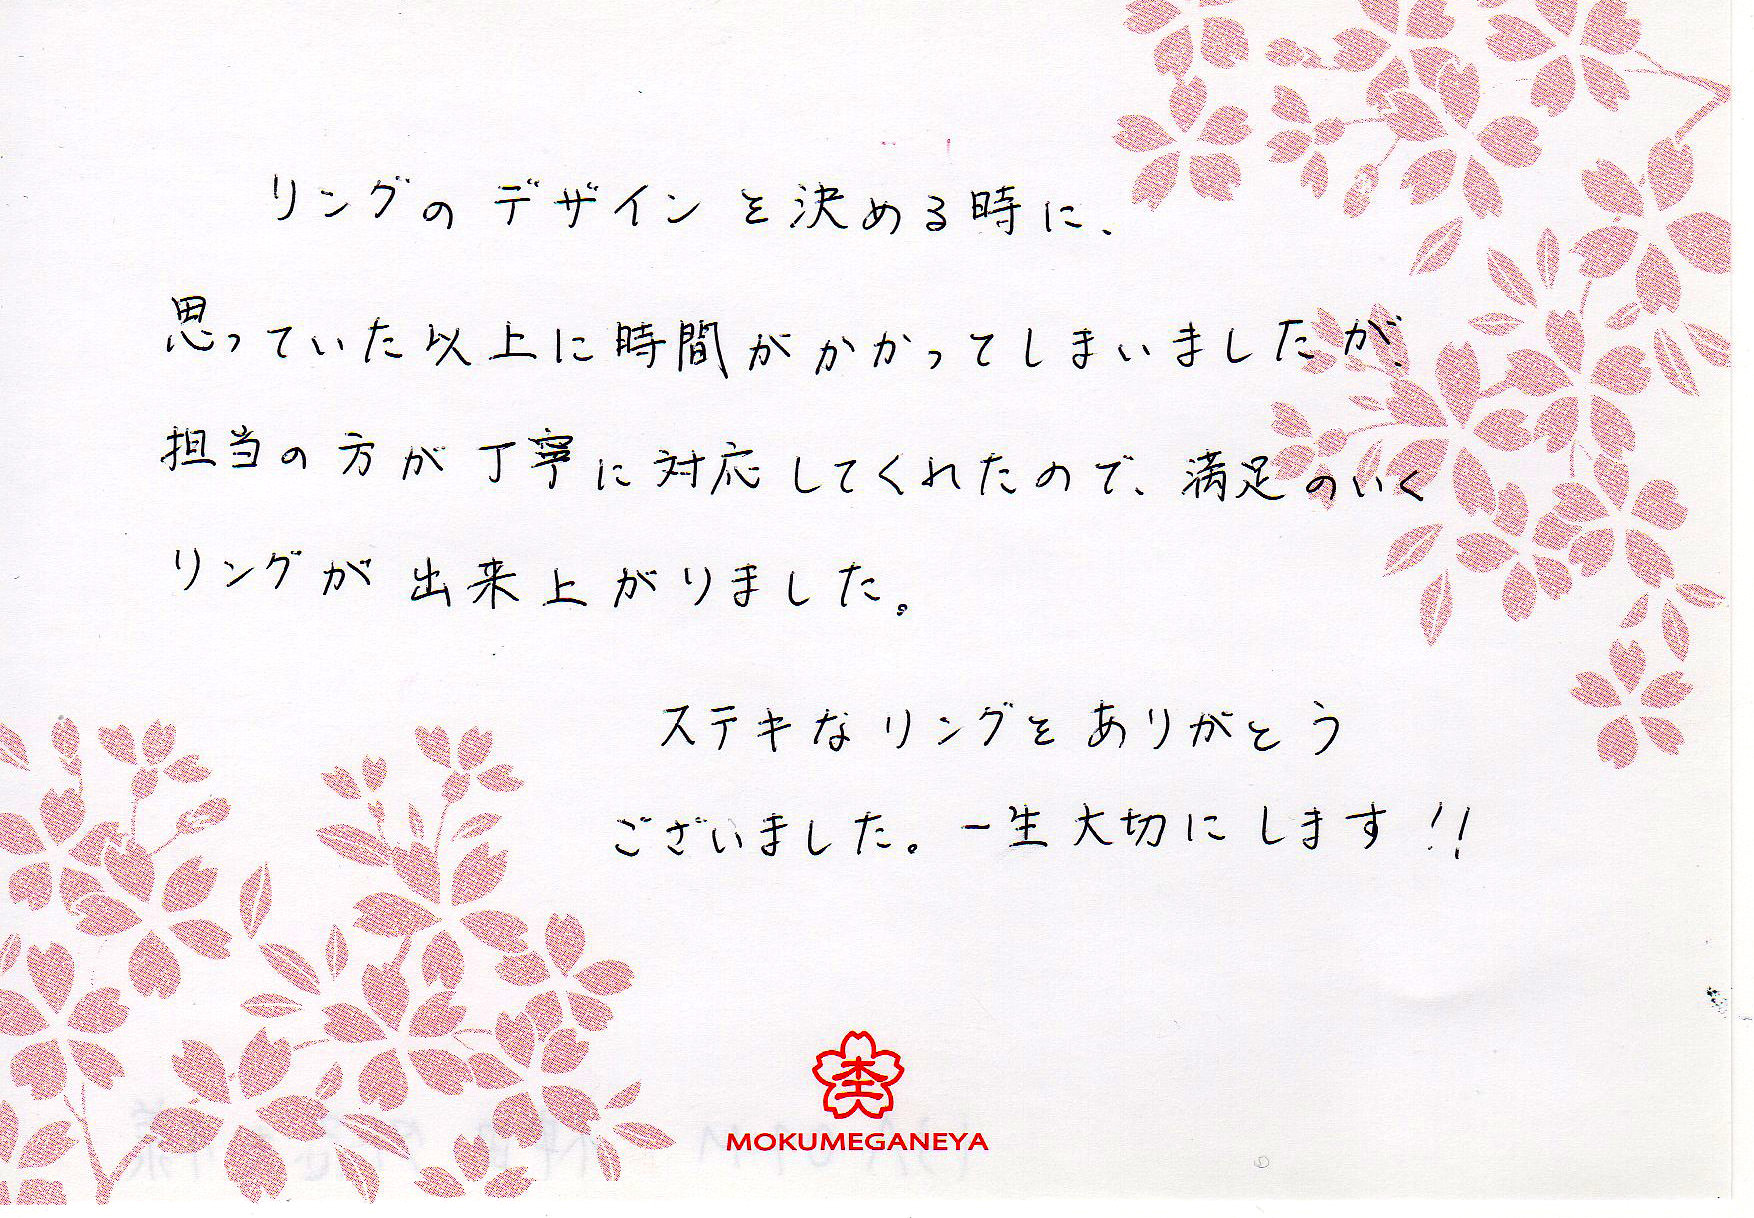 リングのデザインを決める時に、
思っていた以上に時間がかかってしまいましたが、
担当の方が丁寧に対応してくれたので、満足のいく
リングが出来上がりました。
ステキなリングをありがとう
ございました。一生大切にします!!
MOKUMEGANEYA